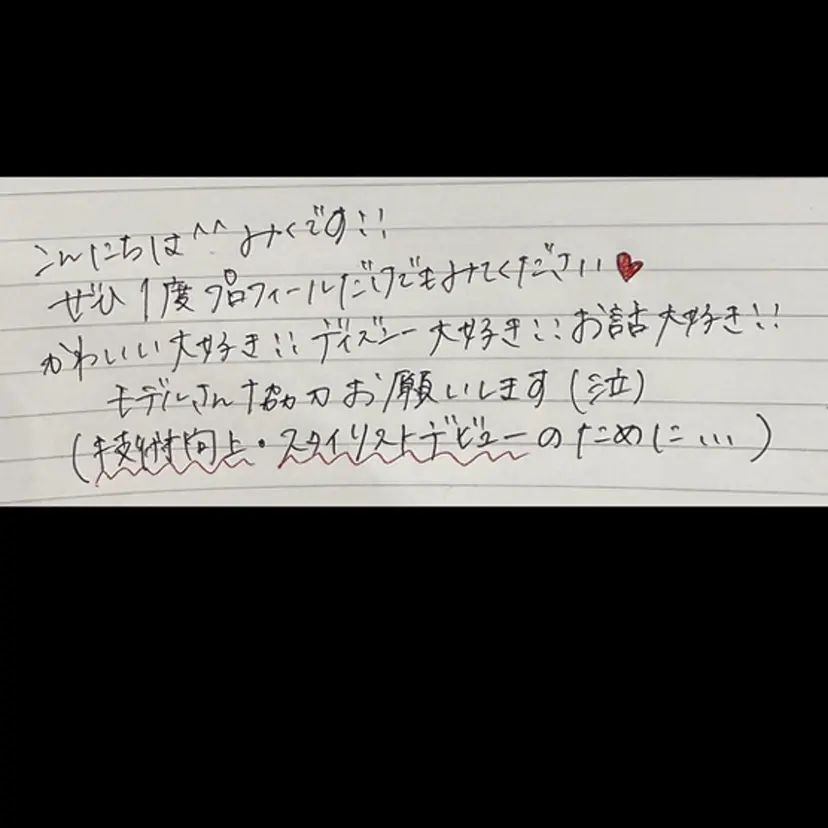 こんにちは^^ みくです!!
ぜひ1度プロフィールだけでもみてください♥
かわいい大好き!! ディズニー大好き!! お話大好き!!
モデルさん協力お願いします(泣)
(技術向上・スタイリストデビューのために...)